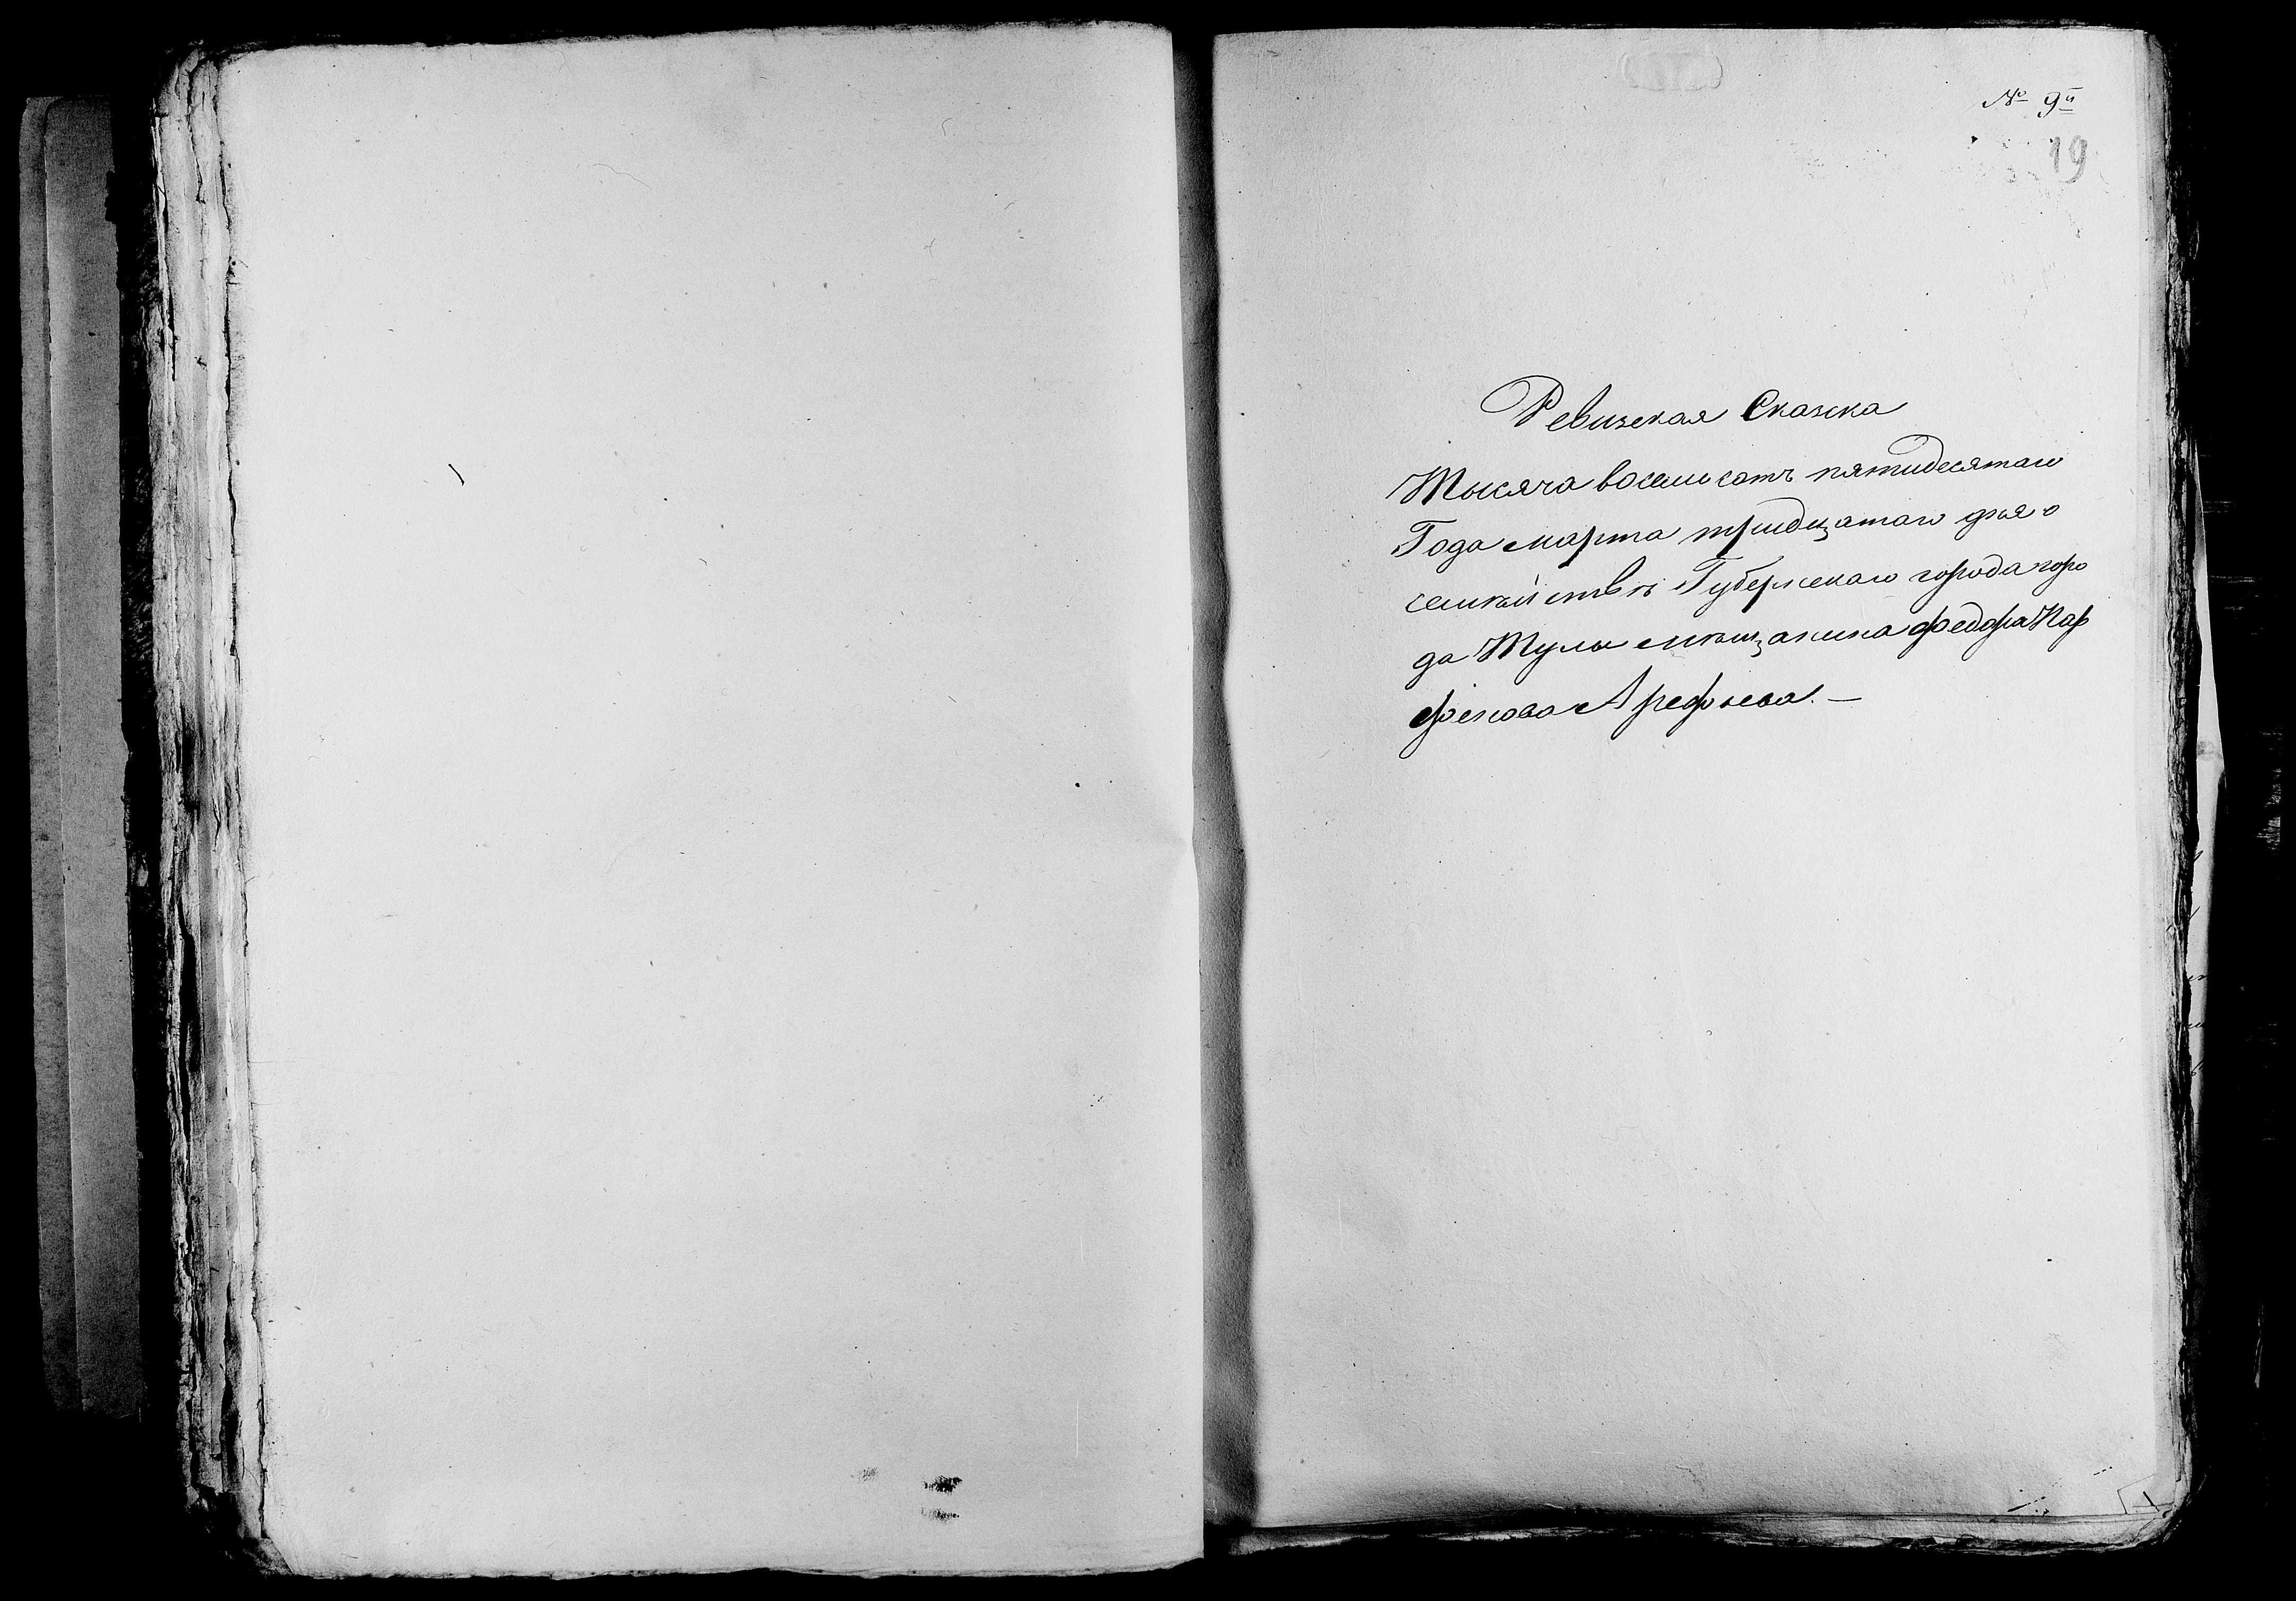 № 9й
19
Ревизская Сказка
Тысяча восемьсотъ пятидесятаго
Года марта тридцатаго дня о
семѣйствѣ Губернскаго города горо
да Тулы мѣщанина Федора Пар
фенова Арефьева. —